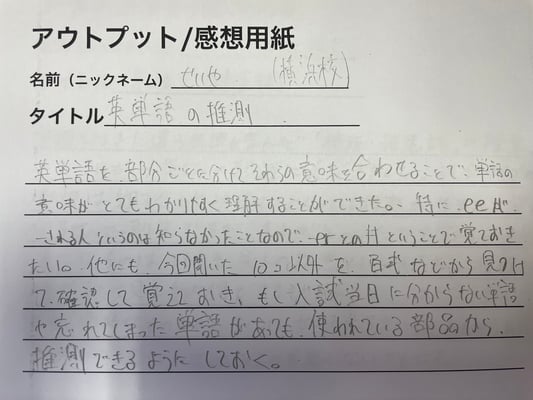 アウトプット/感想用紙
名前（ニックネーム） せいや （横浜校）
タイトル 英単語の推測
英単語を、部分ごとに分けてそれらの意味を合わせることで、単語の
意味がとてもわかりやすく理解することができた。特に、eeが、
〜される人というのは知らなかったことなので、-erとの対ということで覚えておき
たい。他にも、今回聞いた10コ以外を、自分などから見つけ
て、確認して覚えておき、もし入試当日に分からない単語
や忘れてしまった単語があっても、使われている部品から、
推測できるようにしておく。